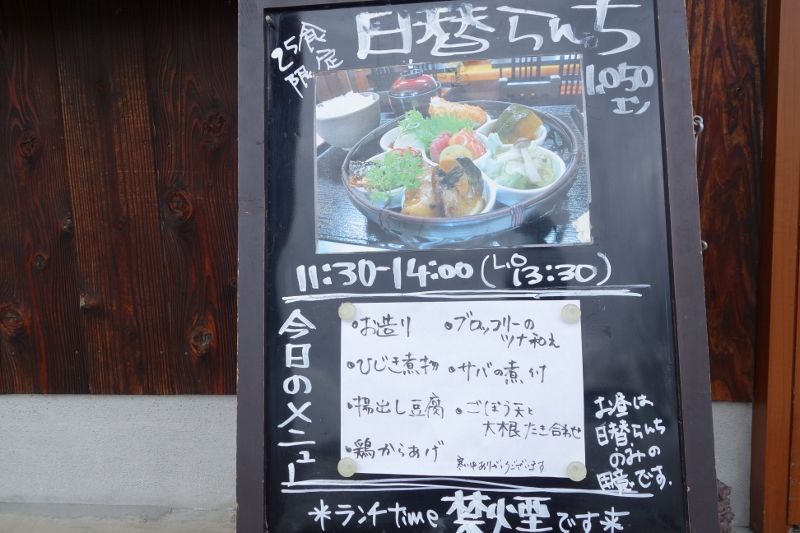 25食
限定
日替らんち
1,050
エン
11:30-14:00(L.O 13:30)
今日のメニュー
•お造り
•ひじき煮物
•揚出し豆腐
•鶏からあげ
•ブロッコリーの
ツナ和え
•サバの煮付
•ごぼう天と
大根たき合わせ
寒い中ありがとうございます
お昼は
日替らんち
のみの
用意です.
*ランチtime 禁煙です*